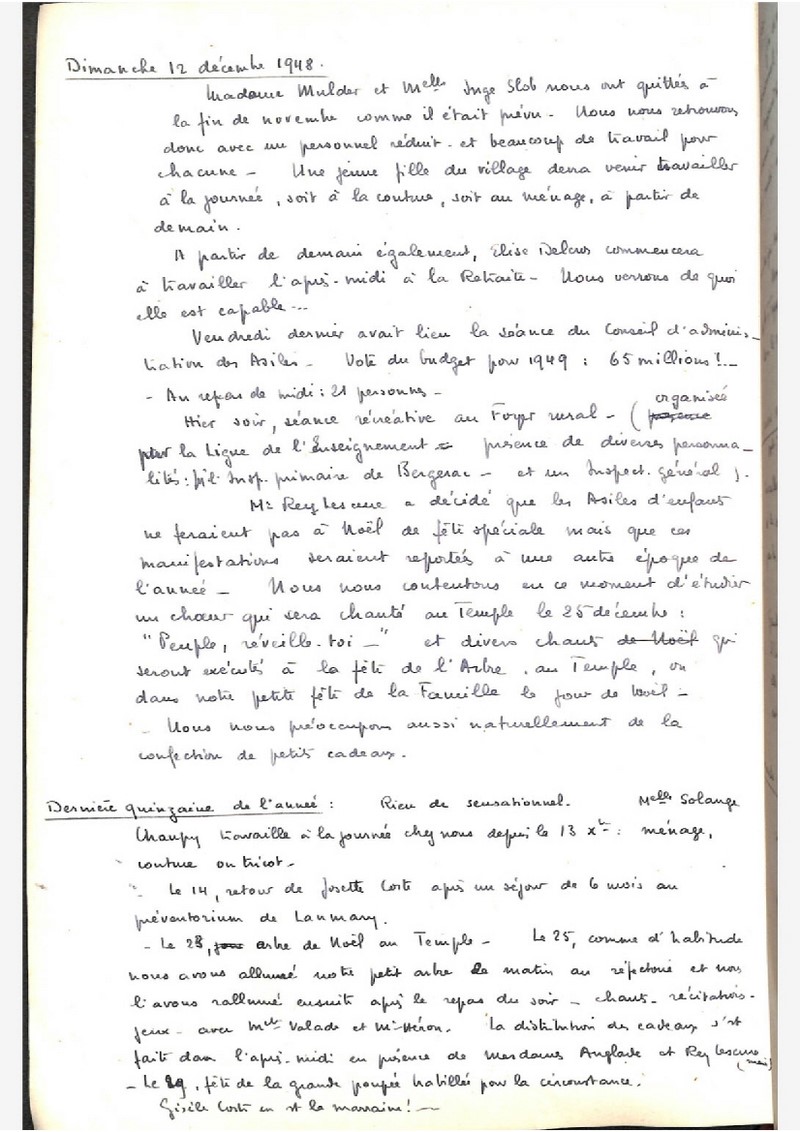 Dimanche 12 décembre 1948.
Madame Mulder et Melle Inge Slob nous ont quittés à
la fin de novembre comme il était prévu - Nous nous retrouvons
donc avec un personnel réduit - et beaucoup de travail pour
chacune - Une jeune fille du village devra venir travailler
à la journée, soit à la couture, soit au ménage, à partir de
demain.
A partir de demain également, Elise Delcros commencera
à travailler l'après-midi à la Retraite - Nous verrons de quoi
elle est capable...
Vendredi dernier avait lieu la séance du Conseil d'adminis-
tration des Asiles - Vote du budget pour 1949 : 65 millions !..
- Au repas de midi : 21 personnes -
Hier soir, séance récréative au Foyer rural - (organisée
par la Ligue de l'Enseignement = présence de diverses personna-
lités : Insp. primaire de Bergerac - et un Inspect. général).
Mr Rey Lescure a décidé que les Asiles d'enfants
ne feraient pas à Noël de fête spéciale mais que ces
manifestations seraient reportées à une autre époque de
l'année - Nous nous contentons en ce moment d'étudier
un chœur qui sera chanté au Temple le 25 décembre :
"Peuple, réveille-toi -" et divers chants de Noël qui
seront exécutés à la fête de l'Arbre, au Temple, ou
dans notre petite fête de la Famille le jour de Noël -
- Nous nous préoccupons aussi naturellement de la
confection de petits cadeaux.
Dernière quinzaine de l'année : Rien de sensationnel. Melle Solange
Chanpy travaille à la journée chez nous depuis le 13 xbre : ménage,
couture ou tricot -
- Le 14, retour de Josette Corte après un séjour de 6 mois au
préventorium de Lanmary.
- Le 23, arbre de Noël au Temple - Le 25, comme d'habitude
nous avons allumé notre petit arbre le matin au réfectoire et nous
l'avons rallumé ensuite après le repas du soir - chants - récitations -
jeux - avec Melle Valade et Mr Héron. La distribution des cadeaux s'est
faite dans l'après-midi en présence de Mesdames Anglade et Rey Lescure
- Le 29, fête de la grande poupée habillée pour la circonstance.
Gisèle Corte en est la marraine ! -